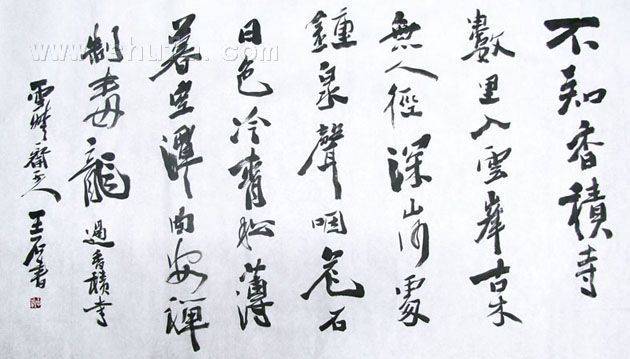 不知香積寺
數里入雲峯古木
無人徑深山何處
鍾泉聲咽危石
日色冷青松薄
暮空潭曲安禪
制毒龍過香積寺
齋主人王石書